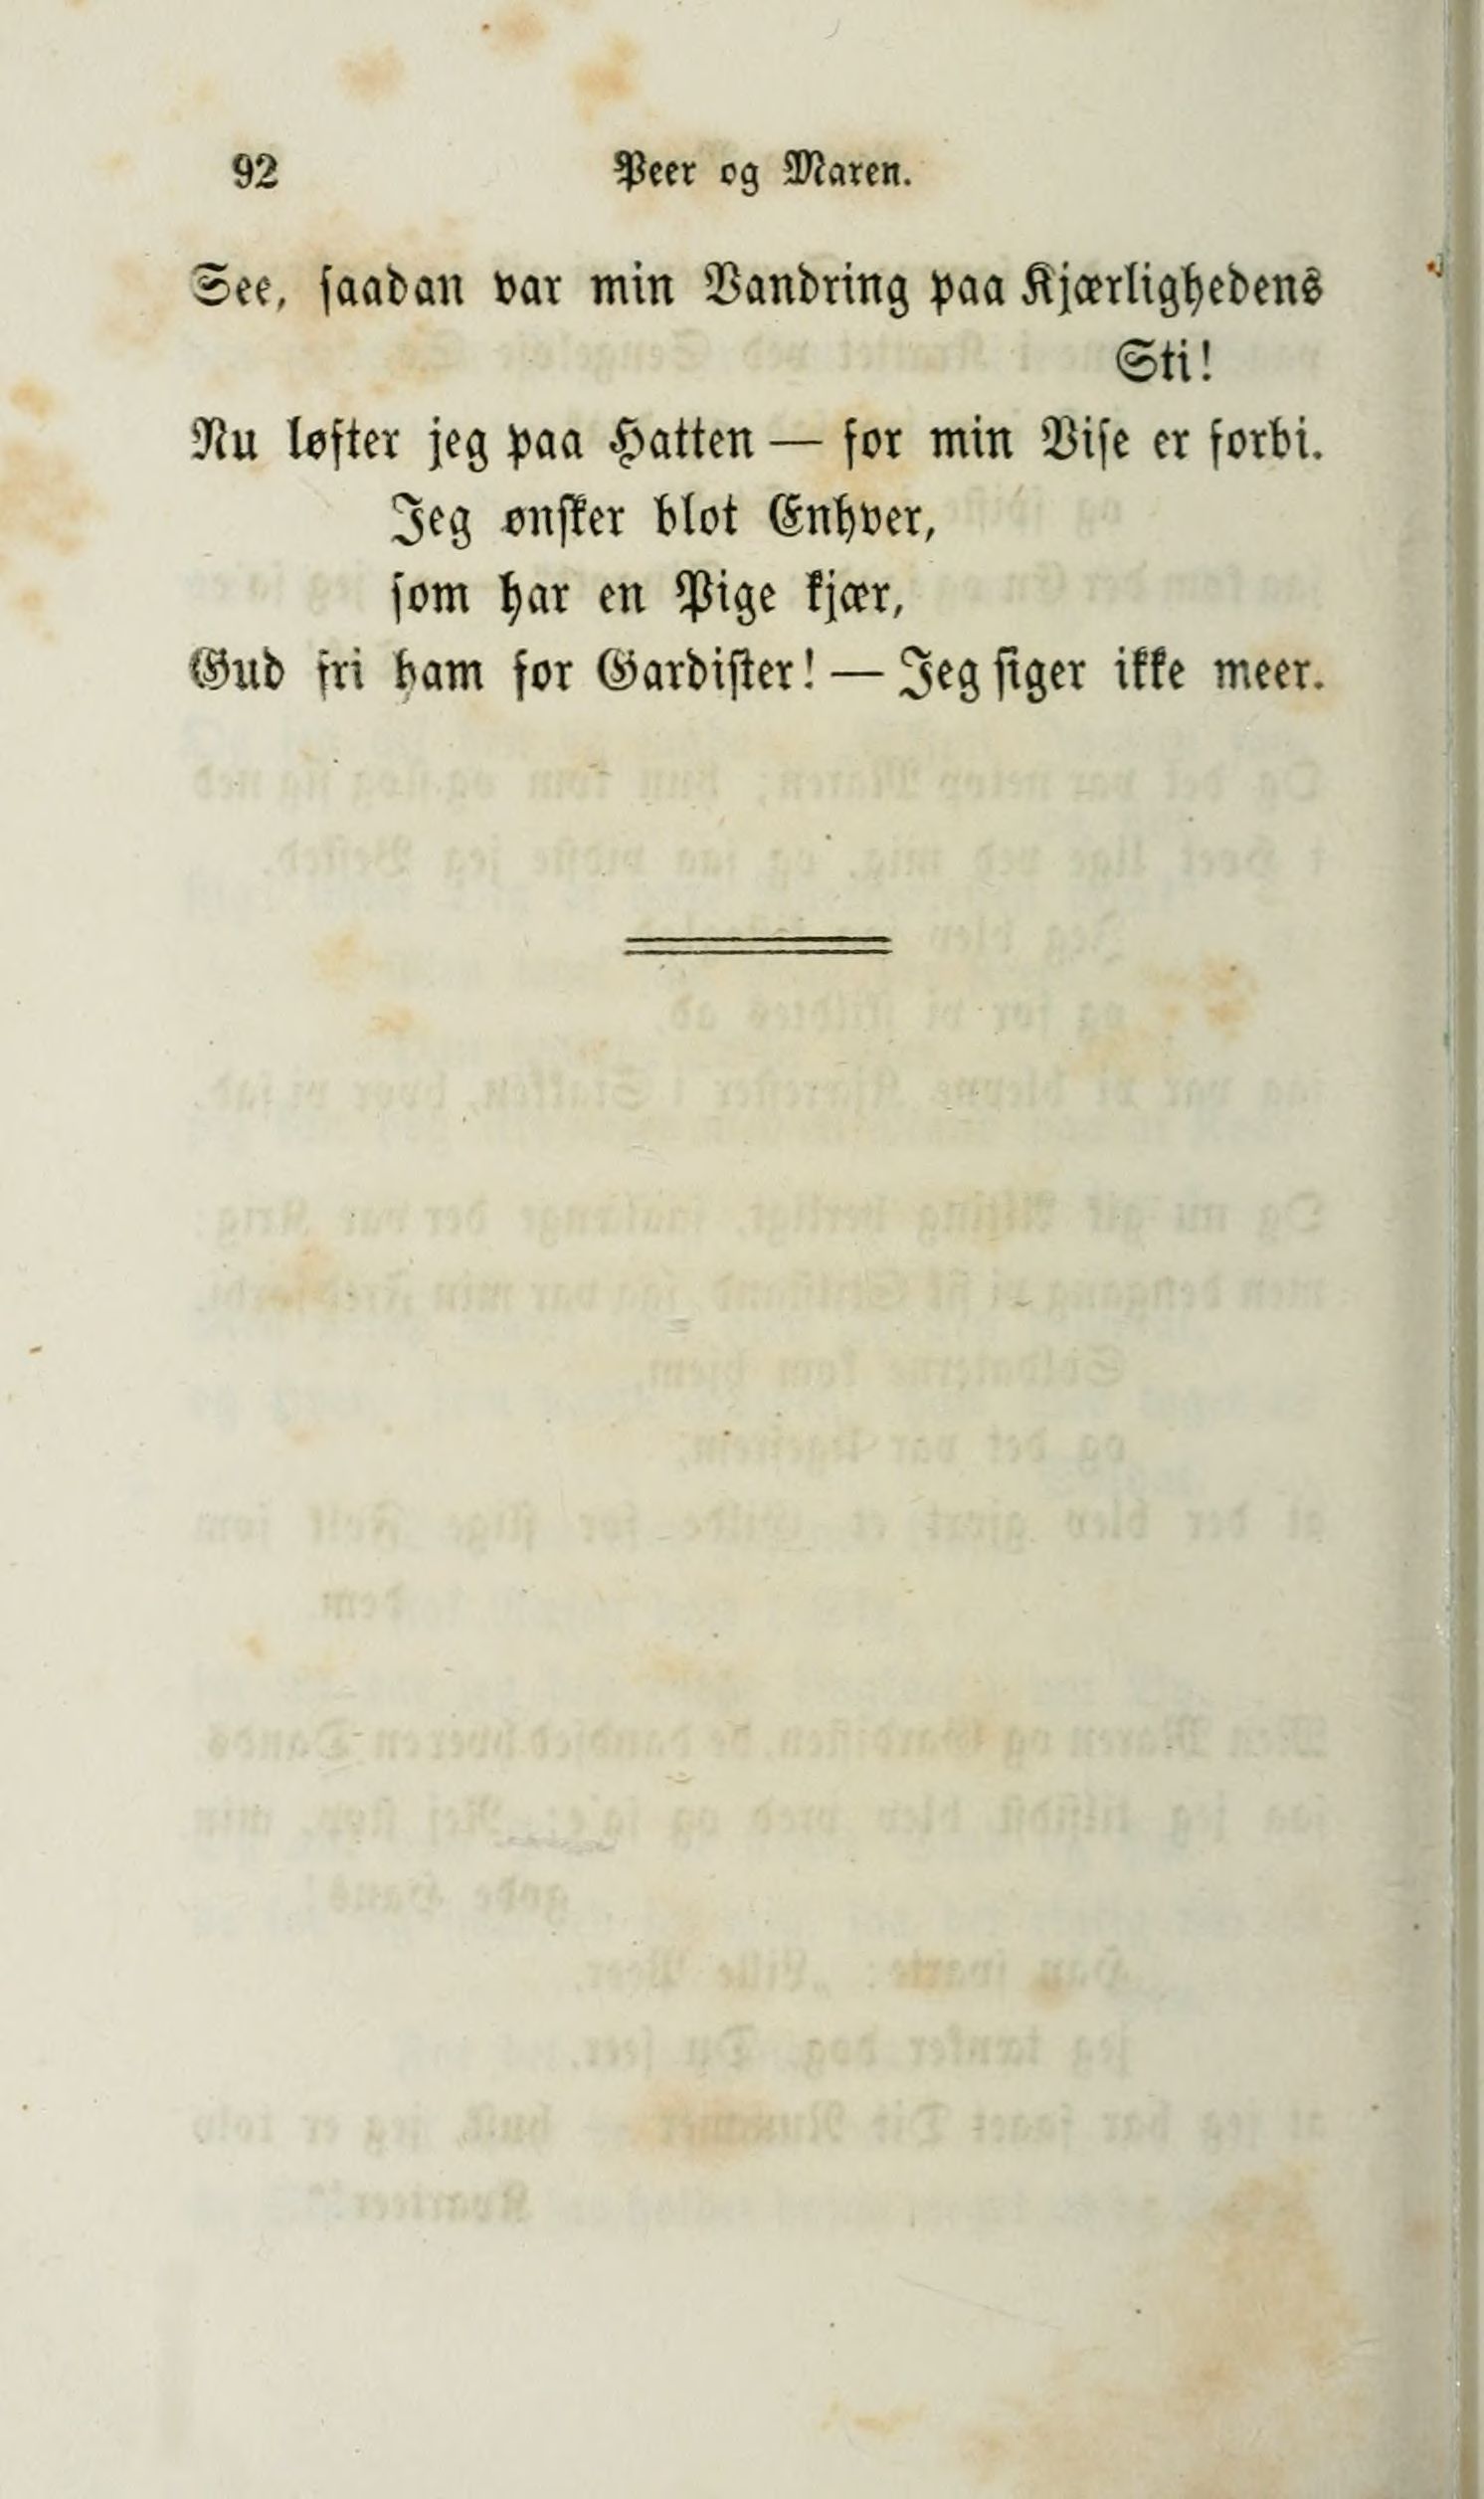 92 Peer og Maren.
See, saadan var min Vandring paa Kjærlighedens
Sti!
Nu løfter jeg paa Hatten — for min Vise er forbi.
Jeg ønsker blot Enhver,
som har en Pige kjær,
Gud fri ham for Gardister! — Jeg siger ikke meer.